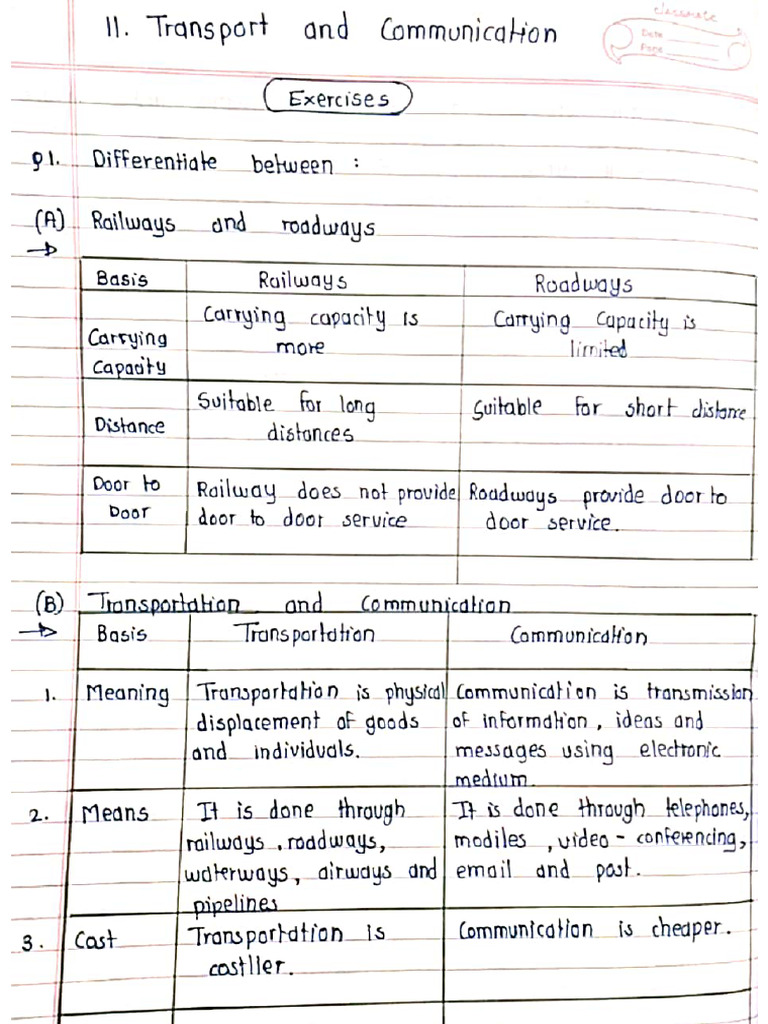 classmate
Date
Page
11. Transport and Communication
Exercises
Q1. Differentiate between :
(A) Railways and roadways
Basis Railways Roadways
Carrying Capacity Carrying capacity is more Carrying Capacity is limited
Distance Suitable for long distances Suitable for short distance
Door to Door Railway does not provide door to door service Roadways provide door to door service.
(B) Transportation and Communication
Basis Transportation Communication
1. Meaning Transportation is physical displacement of goods and individuals. Communication is transmission of information, ideas and messages using electronic medium.
2. Means It is done through railways, roadways, waterways, airways and pipelines It is done through telephones, modiles, video - conferencing, email and post.
3. Cost Transportation is costlier. Communication is cheaper.